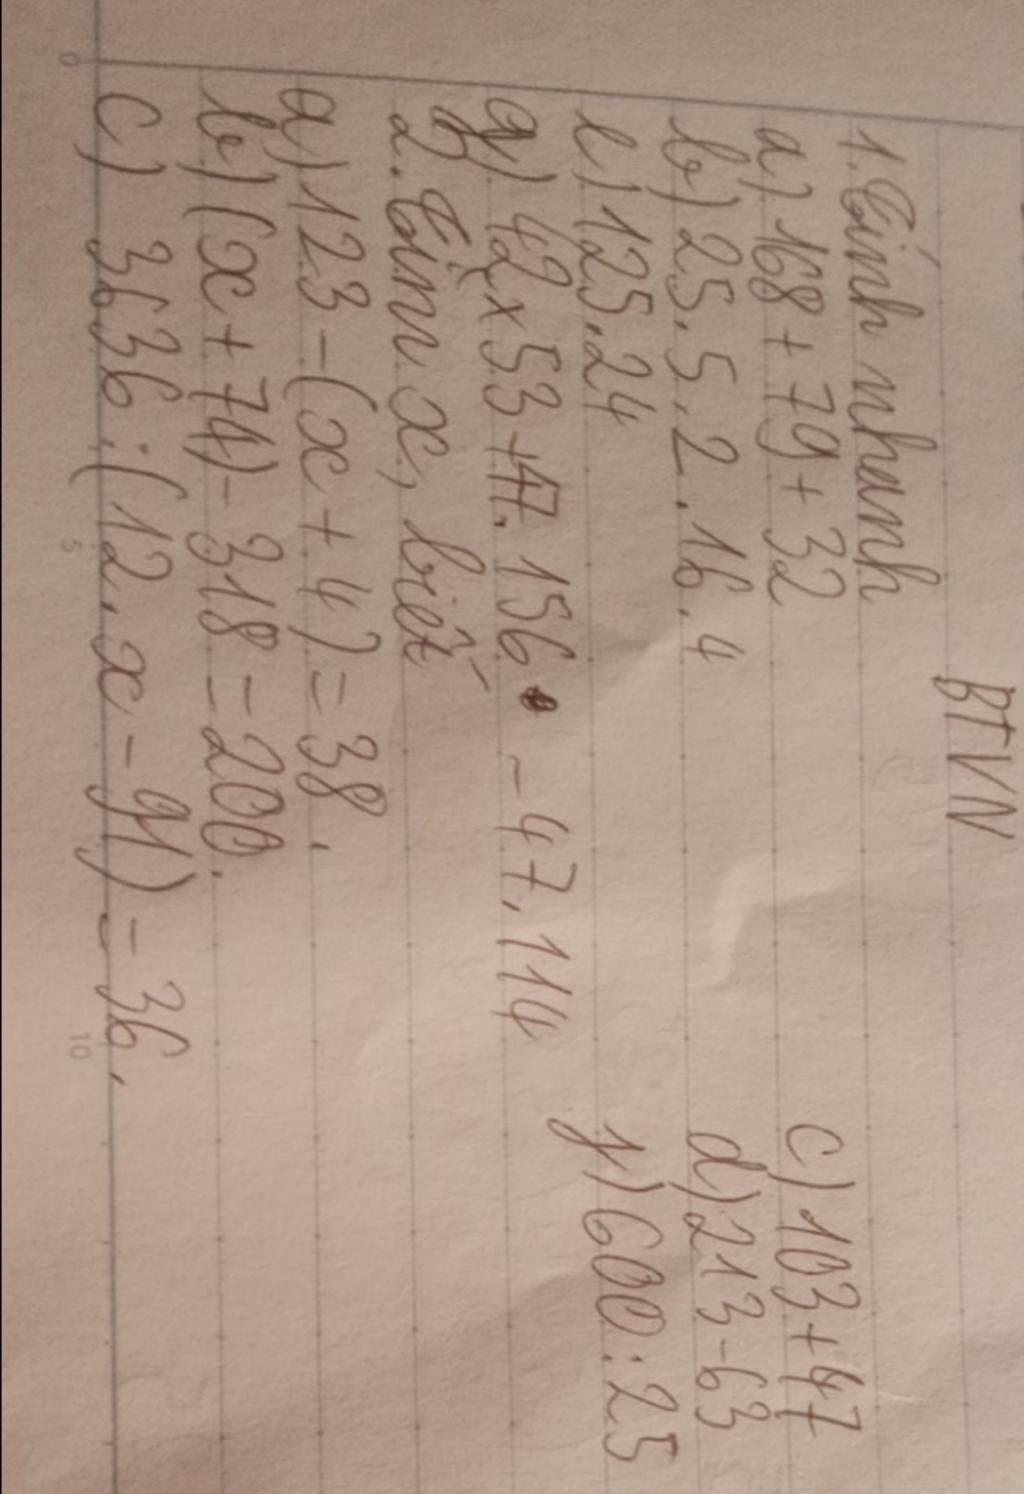 BTVN
1. Tính nhanh
a) 168 + 79 + 32
c) 103 + 47
b) 25.5.2.16.4
d) 213 - 63
e) 125.24
f) 600 : 25
g) 42 x 53 + 47.156 - 47.114
2. Tìm x, biết
a) 123 - (x + 4) = 38.
b) (x + 74) - 318 = 200.
c) 3636 : (12.x - 91) = 36.
0
5
10